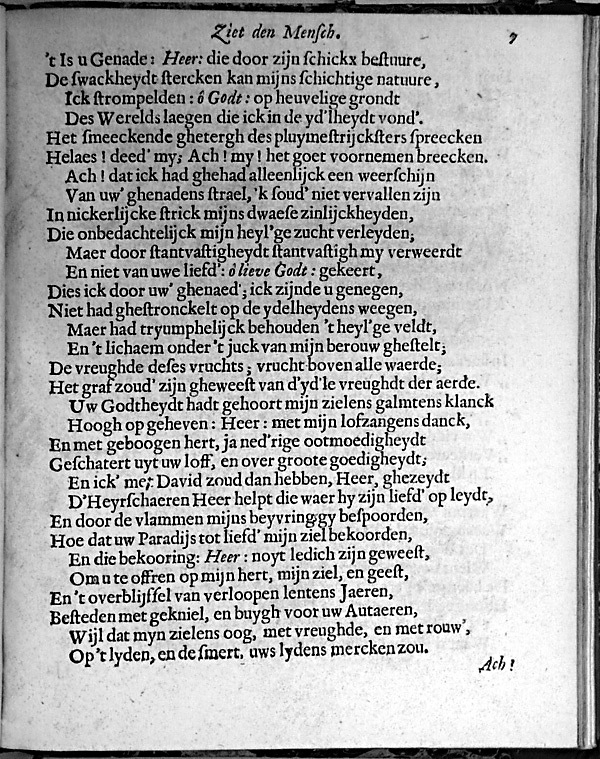 Ziet den Mensch. 7
't Is u Genade: Heer: die door zijn schickx bestuure,
De swackheydt stercken kan mijns schichtige natuure,
Ick strompelden: ô Godt: op heuvelige grondt
Des Werelds laegen die ick in de yd'lheydt vond'.
Het smeeckende ghetergh des pluymestrijcksters spreecken
Helaes! deed' my, Ach! my! het goet voornemen breecken.
Ach! dat ick had ghehad alleenlijck een weerschijn
Van uw' ghenadens strael, 'k soud' niet vervallen zijn
In nickerlijcke strick mijns dwaese zinlijckheyden,
Die onbedachtelijck mijn heyl'ge zucht verleyden;
Maer door stantvastigheydt stantvastigh my verweerdt
En niet van uwe liefd': ô lieve Godt: gekeert,
Dies ick door uw' ghenaed'; ick zijnde u genegen,
Niet had ghestronckelt op de ydelheydens weegen,
Maer had tryumphelijck behouden 't heyl'ge veldt,
En 't lichaem onder 't juck van mijn berouw ghestelt;
De vreughde deses vruchts; vrucht boven alle waerde;
Het graf zoud' zijn gheweest van d'yd'le vreughdt der aerde.
Uw Godtheydt hadt gehoort mijn zielens galmtens klanck
Hoogh op geheven: Heer: met mijn lofzangens danck,
En met geboogen hert, ja ned'rige ootmoedigheydt
Geschatert uyt uw loff, en over groote goedigheydt;
En ick' met David zoud dan hebben, Heer, ghezeydt
D'Heyrschaeren Heer helpt die waer hy zijn liefd' op leydt,
En door de vlammen mijns beyvringgy bespoorden,
Hoe dat uw Paradijs tot liefd' mijn ziel bekoorden,
En die bekooring: Heer: noyt ledich zijn geweest,
Om u te offren op mijn hert, mijn ziel, en geest,
En 't overblijssel van verloopen lentens Jaeren,
Besteden met gekniel, en buygh voor uw Autaeren,
Wijl dat myn zielens oog, met vreughde, en met rouw,
Op 't lyden, en de smert, uws lydens mercken zou.
Ach!